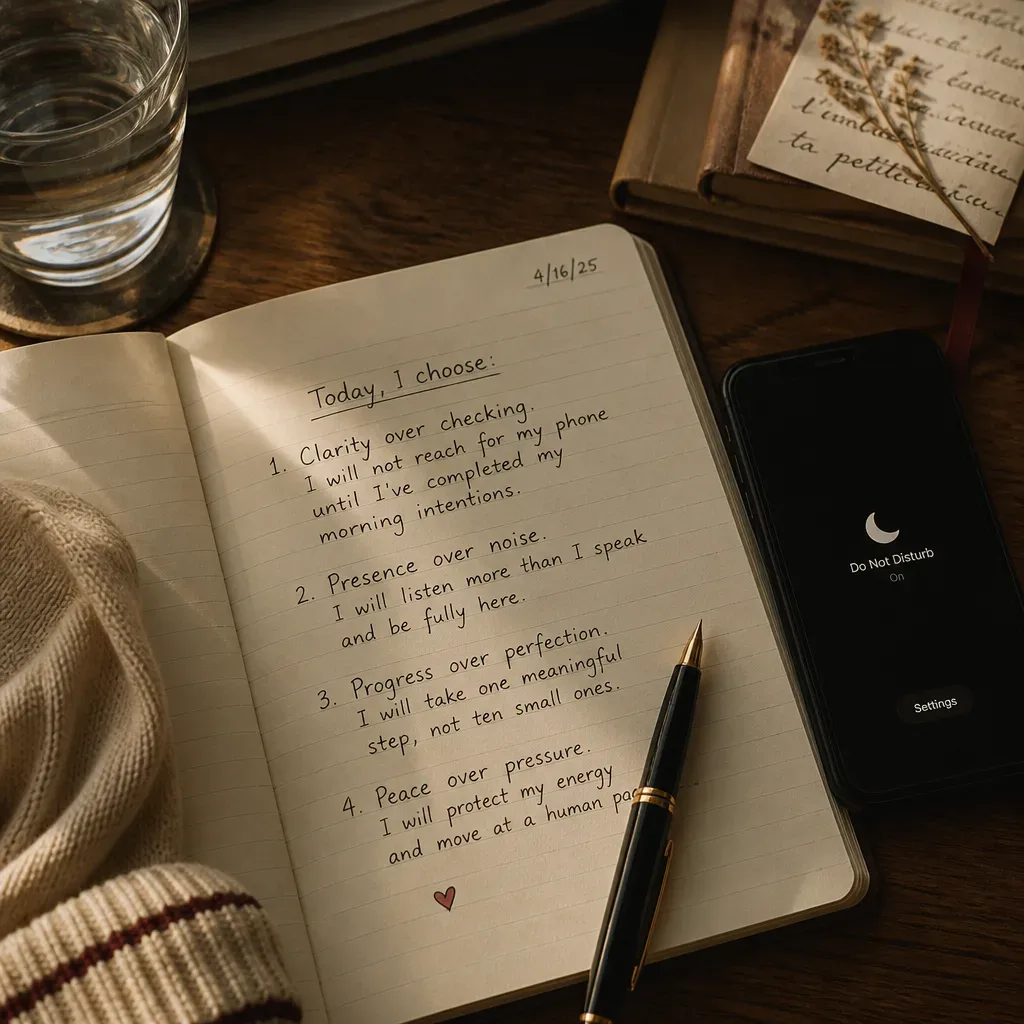 4/16/25
Today, I choose:
1. Clarity over checking.
I will not reach for my phone
until I've completed my
morning intentions.
2. Presence over noise.
I will listen more than I speak
and be fully here.
3. Progress over perfection.
I will take one meaningful
step, not ten small ones.
4. Peace over pressure.
I will protect my energy
and move at a human
Do Not Disturb
On
Settings
ta